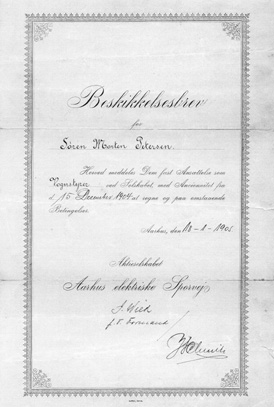 Beskikkelsesbrev
for
Søren Morten Petersen.
Herved meddeles Dem fast Ansættelse som
Vognstyrer ved Selskabet, med Anciennitet fra
d. 15 December 1904 at regne og paa omstaaende
Betingelser.
Aarhus, den 18-1-1905
Aktieselskabet
Aarhus elektriske Sporvej
f. T. Formand